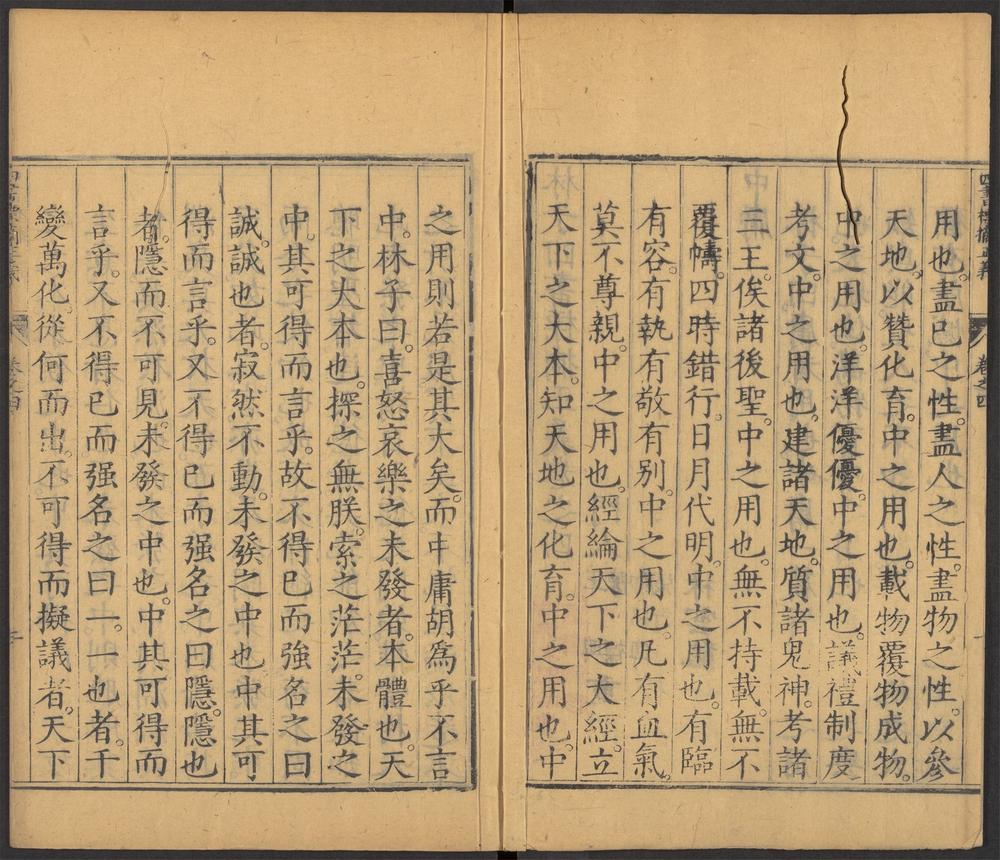 用也。盡已之性。盡人之性。盡物之性。以參
天地。以贊化育。中之用也。載物覆物成物。
中之用也。洋洋優優。中之用也。議禮制度
考文。中之用也。建諸天地。質諸鬼神。考諸
三王。俟諸後聖。中之用也。無不持載。無不
覆幬。四時錯行。日月代明。中之用也。有臨
有容。有執有敬有别。中之用也。凡有血氣。
莫不尊親。中之用也。經綸天下之大經。立
天下之大本。知天地之化育。中之用也。中
之用則若是其大矣。而中庸胡為乎不言
中。林子曰。喜怒哀樂之未發者。本體也。天
下之大本也。探之無朕。索之茫茫。未發之
中。其可得而言乎。故不得已而強名之曰
誠。誠也者。寂然不動。未發之中也。中其可
得而言乎。又不得已而强名之曰隱。隱也
者。隱而不可見。未發之中也。中其可得而
言乎。又不得已而强名之曰一。一也者。千
變萬化。從何而出。不可得而擬議者。天下
卷之四